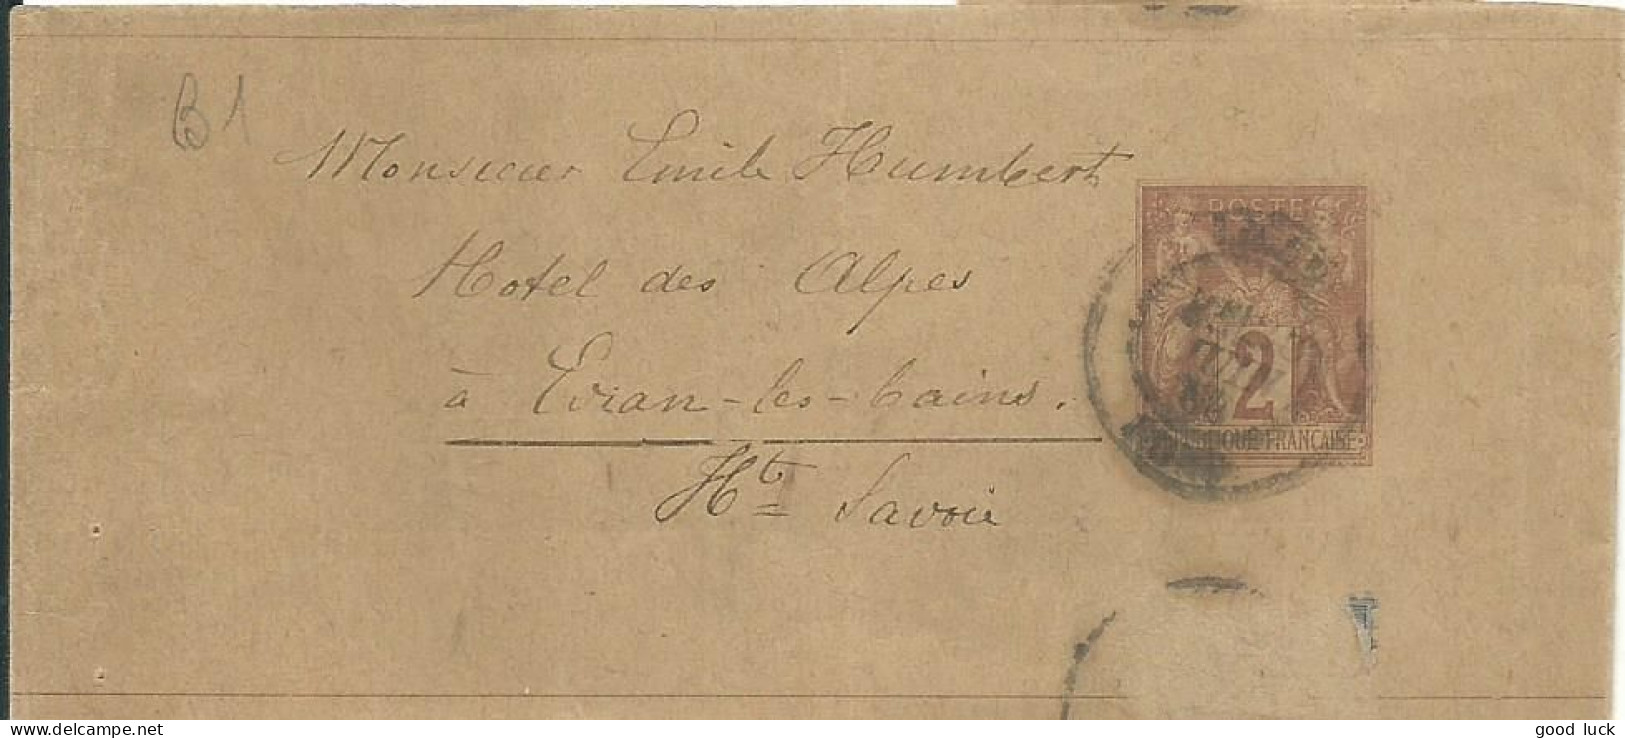 B1
Monsieur Emile Humbert
Hotel des Alpes
à Evian-les-bains.
Hte Savoie
POSTE
2
REPUBLIQUE FRANCAISE
www.delcampe.net
good luck